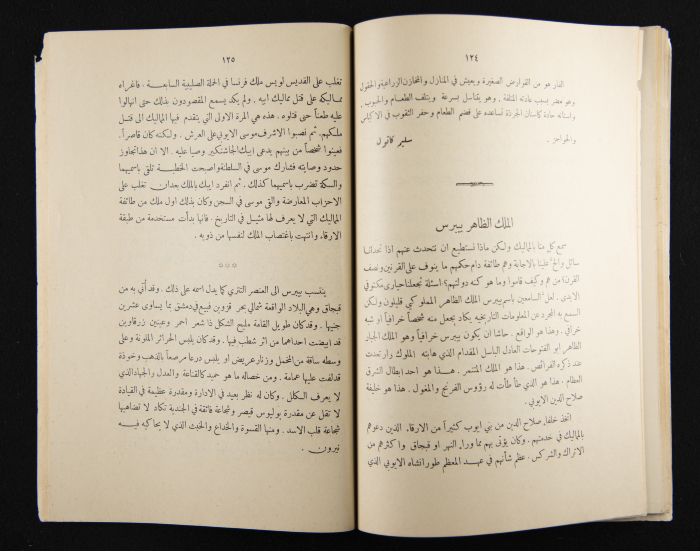 ١٢٤
الفار هو من القوارض الصغيرة ويعيش في المنازل والمخازن الزراعية والحقول
وهو مضر بسبب عادته المتلفة . وهو يتناسل بسرعة ويتلف الطعام والحبوب .
واسنانه حادة كاسنان الجرذة تساعده على قضم الطعام وحفر الثقوب في الاكياس
والحواجز .
سليم كاتول
الملك الظاهر بيبرس
سمع كل منا بالمماليك ولكن ماذا نستطيع ان نتحدث عنهم اذا تحدانا
سائل والحّ علينا بالاجابة وهم طائفة دام حكمهم ما ينوف على القرنين ونصف
القرن؟ من هم وكيف قاموا وما هو كنه دولتهم؟ اسئلة تجعلنا حيارى مكتوفي
الايدي . لعل السامعين باسم بيبرس الملك الظاهر المملوكي قليلون ولكن
السمع به المجرد عن المعلومات التاريخية يكاد يجعل منه شخصاً خرافياً او شبه
خرافي . وهذا هو الواقع . حاشا ان يكون بيبرس خرافياً وهو الملك الجبار
الظاهر ابو الفتوحات العادل الباسل المقدام الذي هابته الملوك وارتعدت
عند ذكره الفرائص . هذا هو الملك المتنمر . هــذا هو احد ابطال الشرقة
العظام . هذا هو الذي طأطأت له رؤوس الفرنج والمغول . هذا هو خليفة
صلاح الدين الايوبي .
اتخذ خلفاء صلاح الدين من بني ايوب كثيراً من الارقاء الذين دعوهم
بالمماليك في خدمتهم . وكان يؤتى بهم مما وراء النهر او قبجاق واكثرهم من
الاتراك والشركس . عظم شأنهم في عهـد المعظم طورانشاه الايوبي الذي
١٢٥
تغلب على القديس لويس ملك فرنسا في الحملة الصليبية السابعــة . فاغراه
مماليكه على قتل مماليك ابيه . ولم يكد يسمع المقصودون بذلك حتى انهالوا
عليه طعناً حتى قتلوه . هذه هي المرة الاولى التي يتقدم فيها المماليك الى قتل
ملكهم . ثم نصبوا الاشرف موسى الايوبي على العرش . ولكنه كان قاصراً .
فعينوا شخصاً من بينهم يدعى ايبك الجاشنكير وصيا عليه . الا ان هذا تجاوز
حدود وصايته فشارك موسى في السلطنة واصبحت الخطبــة تلقى باسميهما
والسكة تضرب باسميهما كذلك . ثم انفرد ايبك بالملك بعد ان تغلب على
الاحزاب المعارضة والقى موسى في السجن وكان بذلك اول ملك من طائفة
المماليك التي لا يعرف لها مثيـل في التاريخ . فانها بدأت مستخدمة من طبقة
الارقاء وانتهت باغتصاب الملك لنفسها من ذويه .
* * *
ينتسب بيبرس الى العنصر التتري كما يدل اسمه على ذلك . وقد أتي به من
قبجاق وهي البلاد الواقعة شمالي بحر قزوين فبيع في دمشق بما يساوى عشرين
جنيها . وقد كان طويل القامة مليح الشكل ذا شعر احمر وعينين زرقاوين
قد ابيضت احداهما من اثر شطب فيها . وقد كان يلبس الحرائر الملونة وعلى
وسطه سافة من المخمل وزنار عريض او يلبس درعا مرصعاً بالذهب وخوذة
قد لفت عليها عمامة . ومن خصاله ما هو حميد كالقناعة والعدل والجهاد الذي
لا يعرف الـكلل . وكان له نظر بعيد في الادارة ومقدرة عظيمة في القيادة
لا تقل عن مقدرة يوليوس قيصر وشجاعة فائقة في الجندية تكاد لا تضاهيها
شجاعة قلب الاسد . ومنها القسوة والخداع والخبث الذي لا يحاكيه فيــه
نيرون .